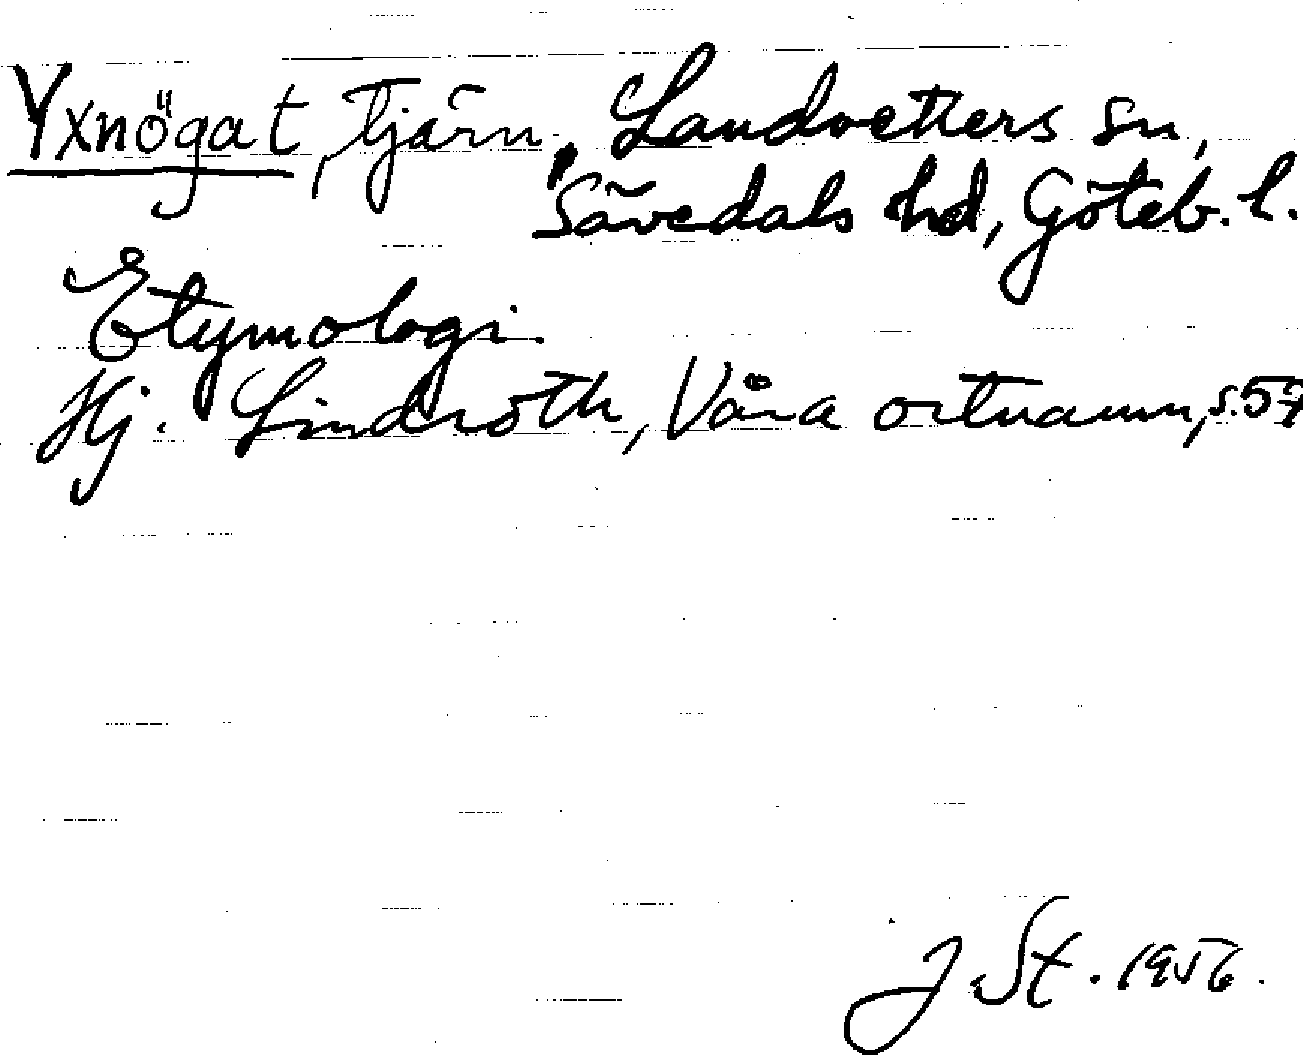 Yxnögat, tjärn, Landvetters sn,
Sävedals hd, Göteb. l.
Etymologi.
Hj. Lindroth, Våra ortnamn, s. 57
J St. 1956.